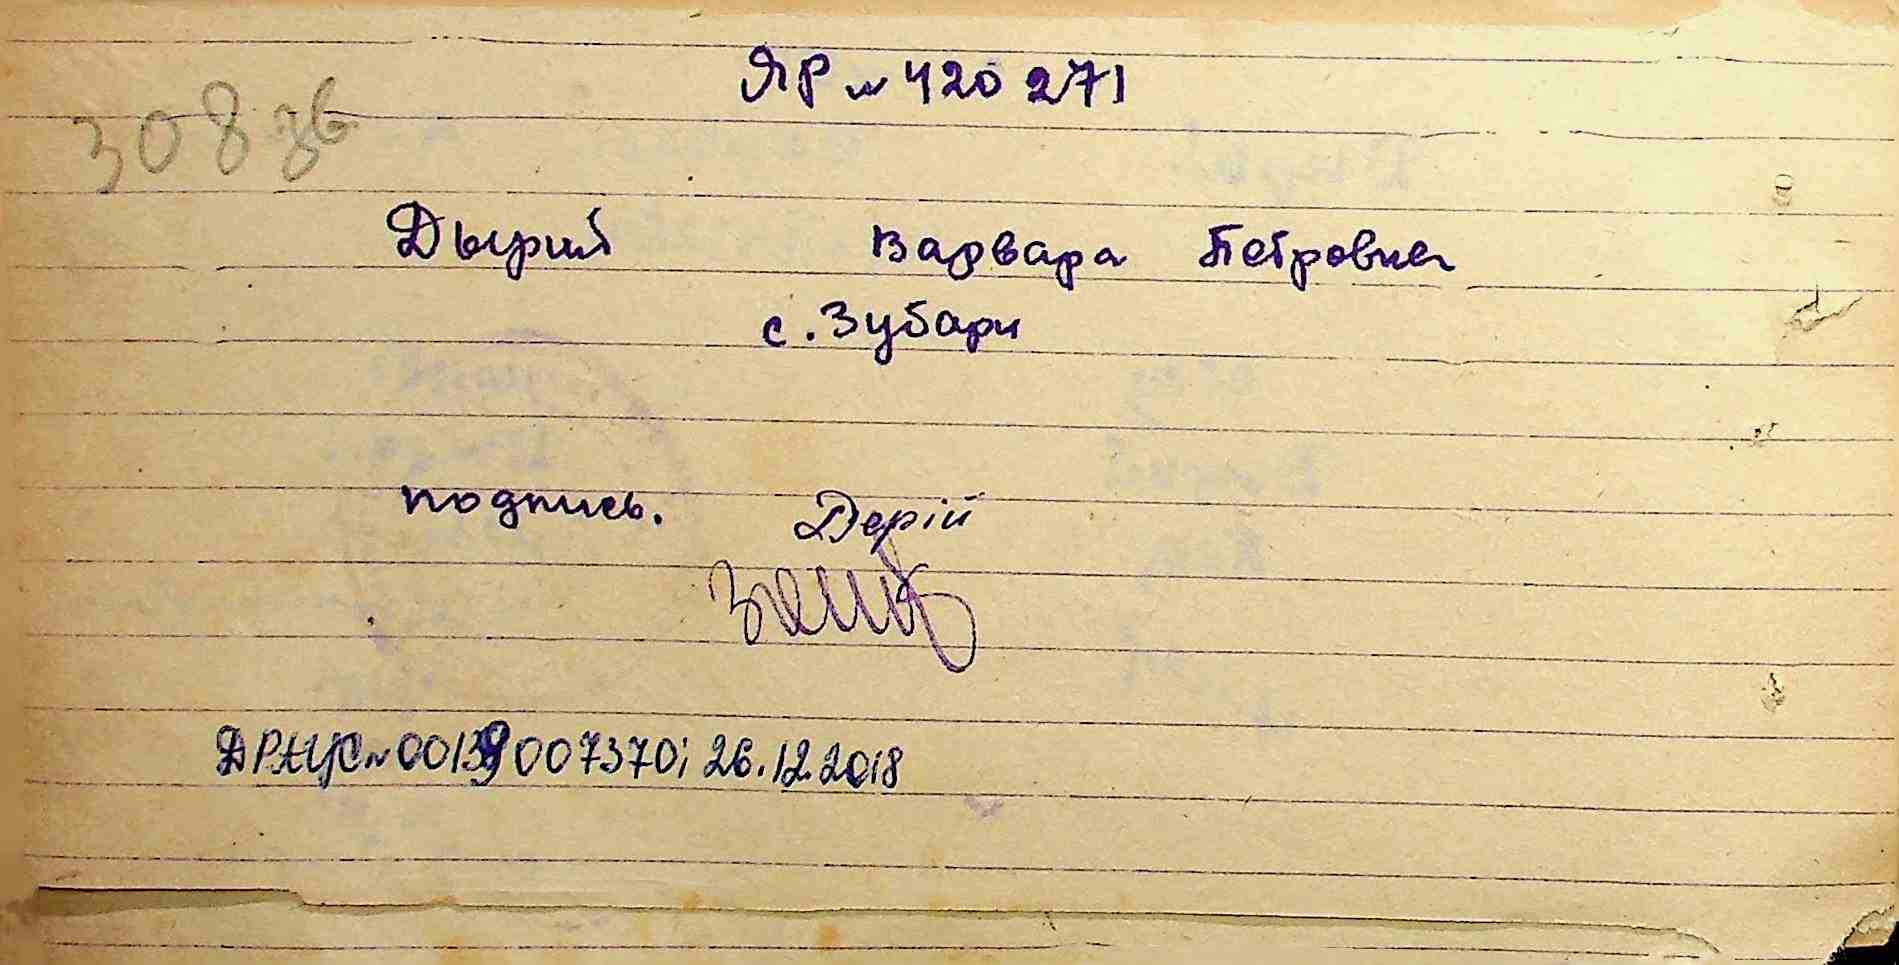 ЯР № 420 271
308 зв
Дырий Варвара Петровна
с. Зубари
подпись. Дерій
ДРАЦС № 00139007370; 26.12.2018